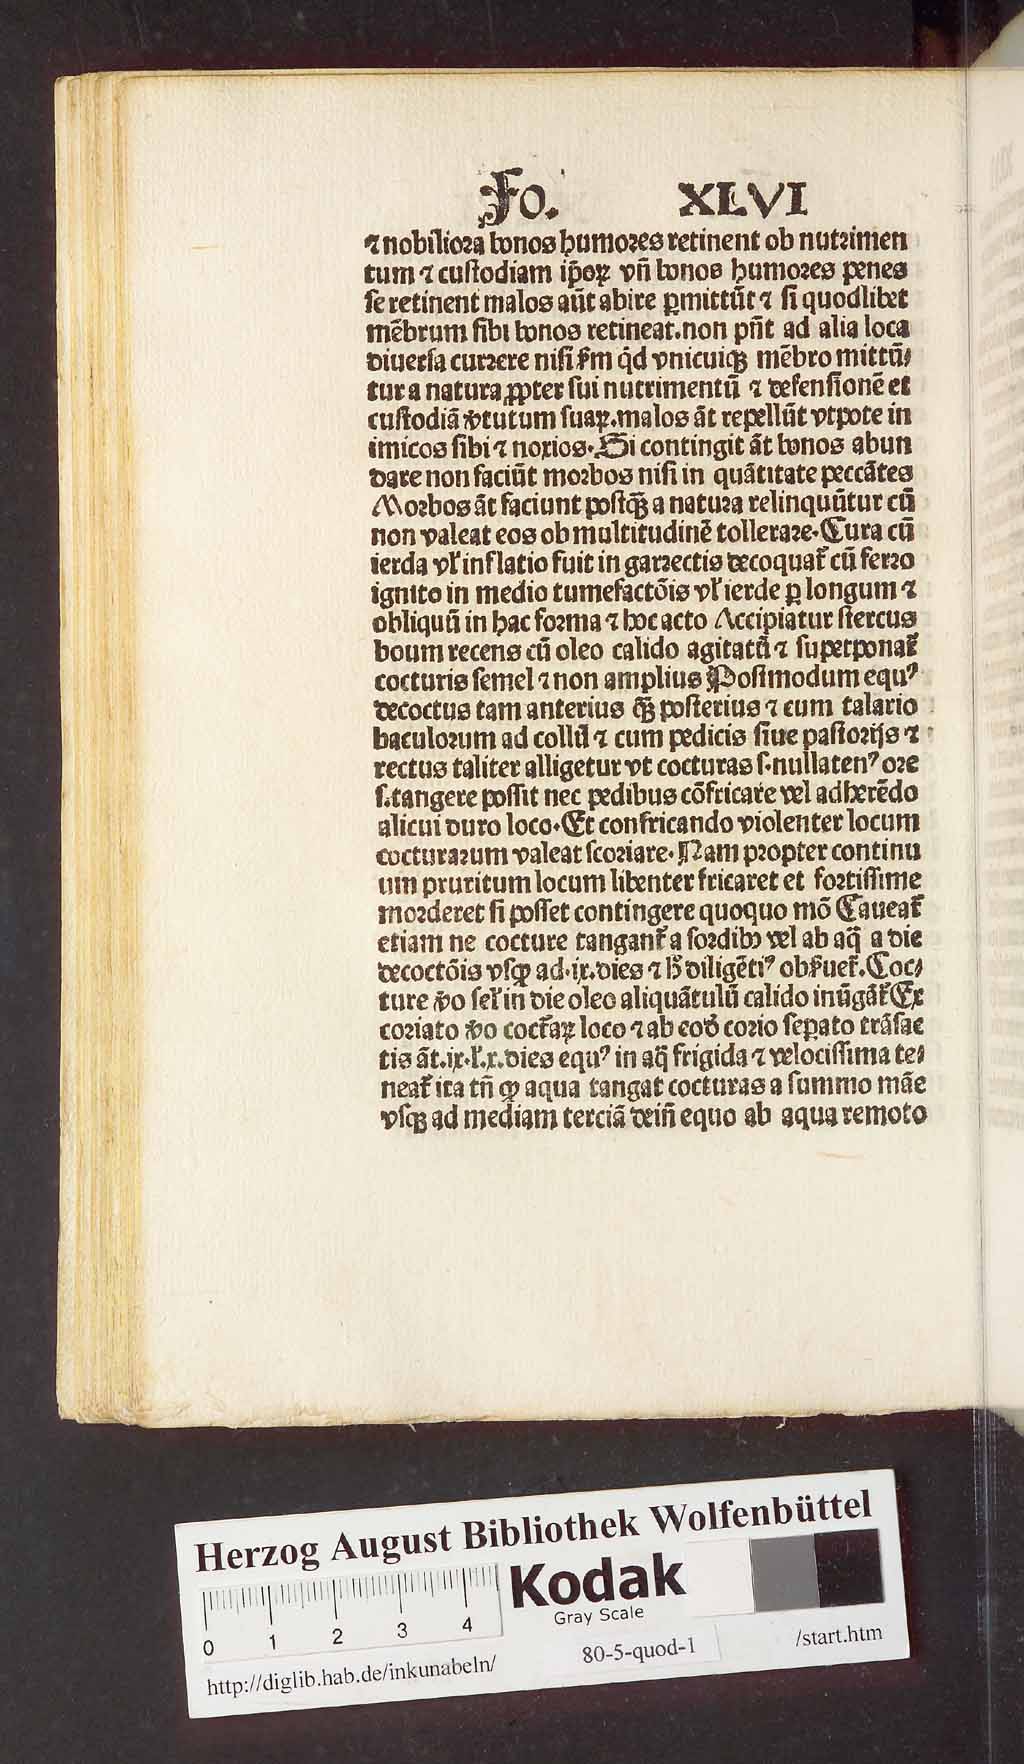 Fo. XLVI
⁊ nobiliora bonos humores retinent ob nutrimen
tum ⁊ custodiam ip̄oꝝ vn̄ bonos humores penes
se retinent malos aūt abire ꝑmittūt ⁊ si quodlibet
mēbrum sibi bonos retineat.non pn̄t ad alia loca
diuersa currere nisi ẜm qd̄ vnicuiqꝫ mēbro mittū⸗
tur a natura ꝓpter sui nutrimentū ⁊ defensionē et
custodiā v̄tutum suaꝝ.malos āt repellūt vtpote in
imicos sibi ⁊ noxios.Si contingit āt bonos abun
dare non faciūt morbos nisi in quātitate peccātes
Morbos āt faciunt postqꝫ̄ a natura relinquūtur cū
non valeat eos ob multitudinē tollerare.Cura cū
ierda vl̓ inflatio fuit in garrectis decoquat̄ cū ferro
ignito in medio tumefactōis vl̓ ierde ꝑ longum ⁊
obliquū in hac forma ⁊ hoc acto Accipiatur stercus
boum recens cū oleo calido agitatū ⁊ superponat̄
cocturis semel ⁊ non amplius Postmodum equꝰ
decoctus tam anterius qꝫ̄ posterius ⁊ cum talario
baculorum ad collū ⁊ cum pedicis siue pastorijs ⁊
rectus taliter alligetur vt cocturas s.nullatenꝰ ore
s.tangere possit nec pedibus cōfricare vel adherēdo
alicui duro loco.Et confricando violenter locum
cocturarum valeat scoriare.Nam propter continu
um pruritum locum libenter fricaret et fortissime
morderet si posset contingere quoquo mō Caueat̄
etiam ne cocture tangant̄ a sordibꝫ vel ab aq̄ a die
decoctōis vsqꝫ ad.ix.dies ⁊ h̄ diligētiꝰ obẜuet̄.Coc⸗
ture v̄o sel̓ in die oleo aliquātulū calido inūgāt̄ Ex
coriato v̄o coct̄aꝝ loco ⁊ ab eod̄ corio seꝑato trāsac
tis āt.ix.l̓.x.dies equꝰ in aq̄ frigida ⁊ velocissima te⸗
neat̄ ita tn̄ ꝙ aqua tangat cocturas a summo māe
vsqꝫ ad mediam terciā dein̄ equo ab aqua remoto
Herzog August Bibliothek Wolfenbüttel
Kodak
Gray Scale
0 1 2 3 4
http://diglib.hab.de/inkunabeln/ 80-5-quod-1 /start.htm